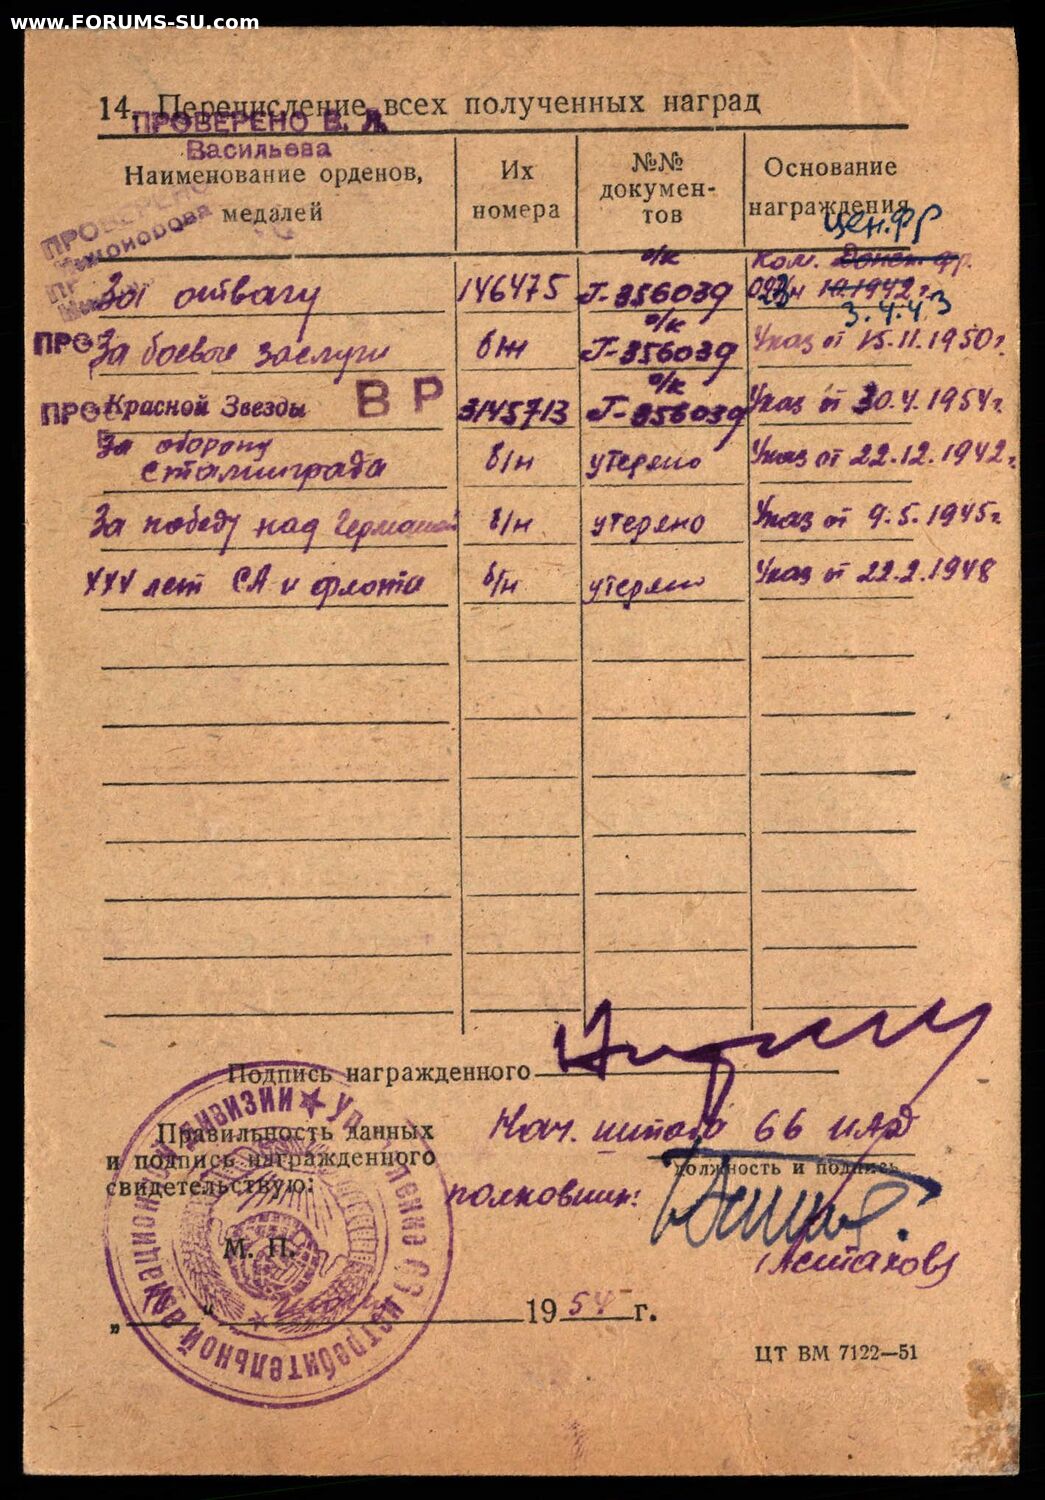 www.FORUMS-SU.com
14. Перечисление всех полученных наград
ПРОВЕРЕНО В. Л.
Васильева
Наименование орденов, медалей
Их номера
№№ докумен-тов
Основание награждения
ПРОВЕРЕНО
цен. фр
За отвагу 146475 о/к Г-356039 Ком. Донск. фр. 023/н 10.1942 г.
3.4.43
ПРО
За боевые заслуги б/н о/к Г-356039 Указ от 15.11.1950 г.
ПРО
Красной Звезды ВР 3145713 о/к Г-356039 Указ от 30.4.1954 г.
За оборону Сталинграда б/н утеряно Указ от 22.12.1942 г.
За победу над Германией б/н утеряно Указ от 9.5.1945 г.
XXV лет СА и флота б/н утеряно Указ от 22.2.1948
Подпись награжденного
Правильность данных
и подпись награжденного
свидетельствую:
Нач. штаба 66 ИАД
должность и подпись
полковник:
М. П.
(Асташов)
„ “ 1954 г.
ЦТ ВМ 7122—51
Управление 66 истребительной авиационной дивизии